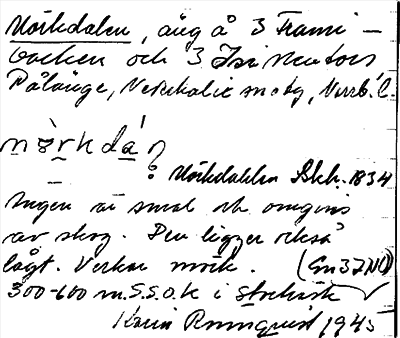 Mörkdalen, äng å 3 Frami-
backen och 3
Pålänge, Nederkalix sn o tg, Norrb. l.
mö̀rkdán
Mörkdahlen Skh. 1834
Ängen är smal och omgivs
av skog. Den ligger också
lågt. Verkar mörk. (Gn37NO)
300-600 m. S.S.O. k i storkart
Karin Rönnquist 1945